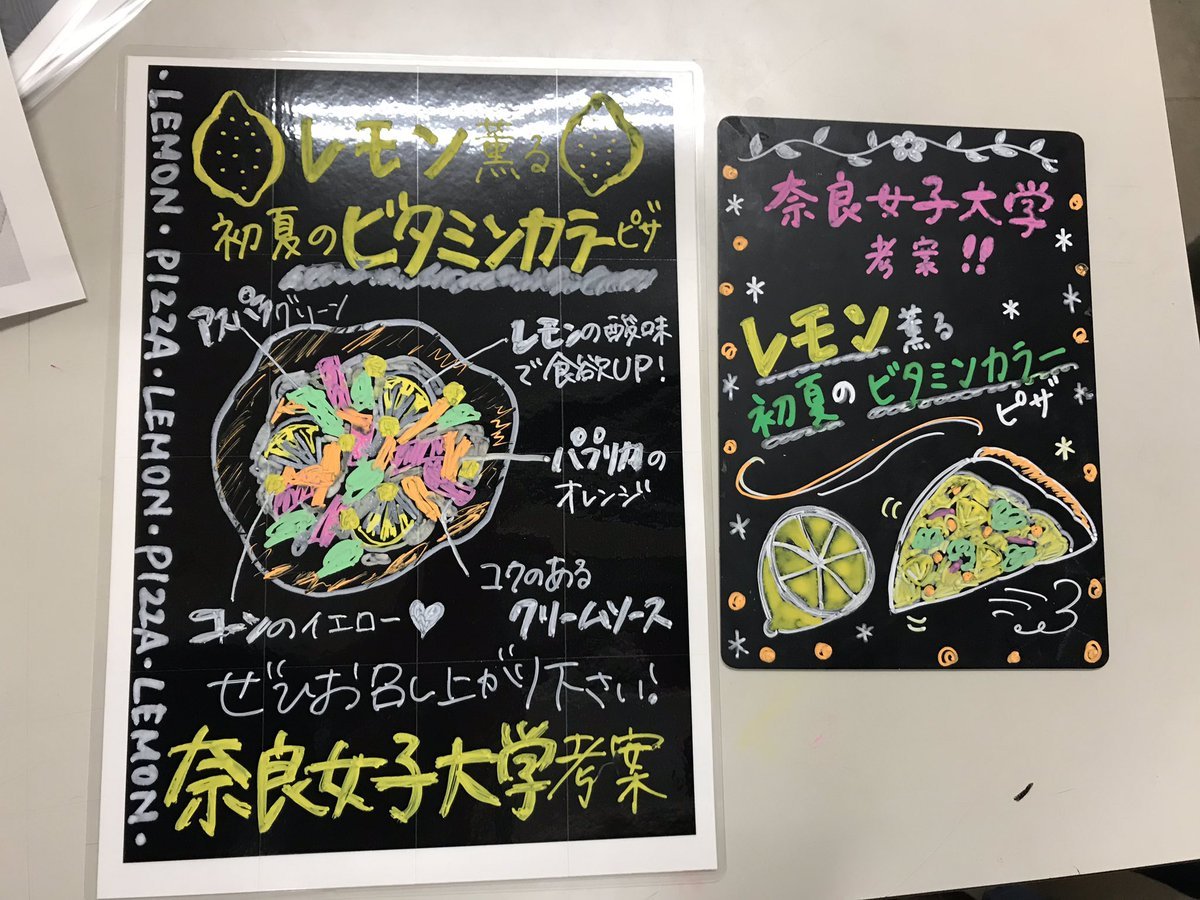 ・LEMON・PIZZA・LEMON・PIZZA・LEMON・
レモン薫る
初夏のビタミンカラーピザ
アスパラグリーン
レモンの酸味
で食欲UP!
パプリカの
オレンジ
コクのある
クリームソース
コーンのイエロー
ぜひお召し上がり下さい!
奈良女子大学考案
奈良女子大学
考案!!
レモン薫る
初夏のビタミンカラー
ピザ